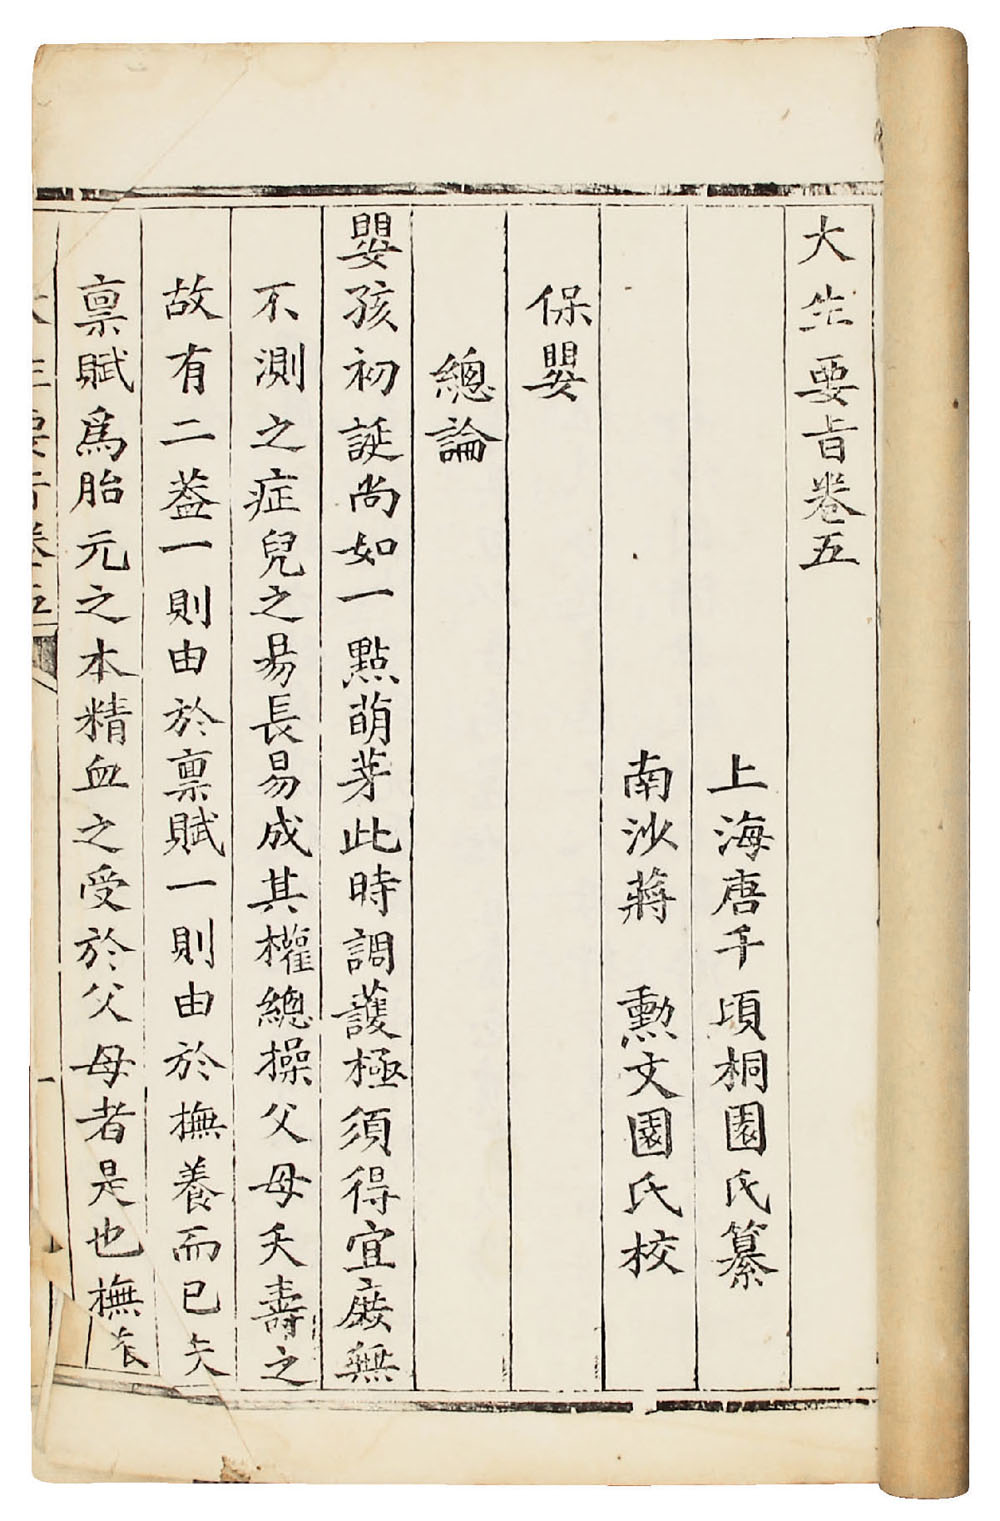 大生要旨卷五
上海唐千頃桐園氏纂
南沙蔣　勲文園氏校
保嬰
總論
嬰孩初誕尚如一點萌芽此時調護極須得宜庻無
不測之症兒之易長易成其權總操父母夭壽之
故有二葢一則由於禀賦一則由於撫養而已矢
禀賦爲胎元之本精血之受於父母者是也撫养
大生要旨卷五
一